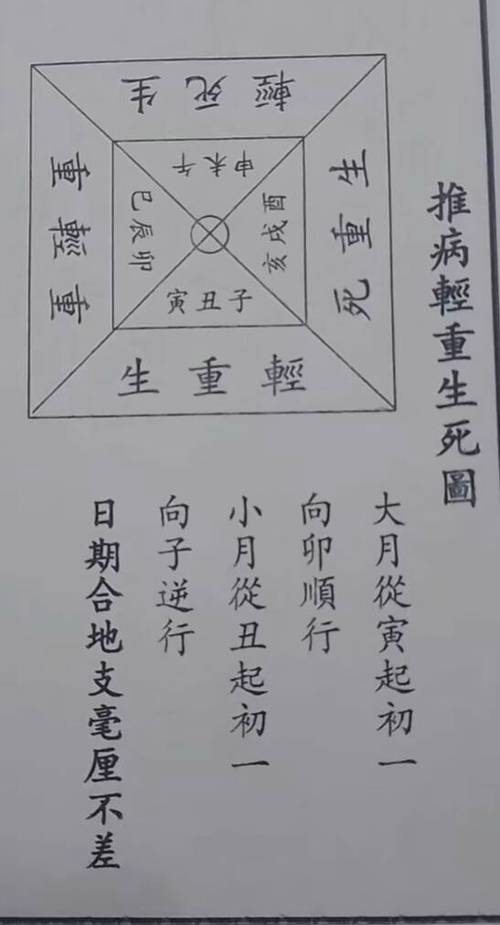 推病輕重生死圖
大月從寅起初一
向卯順行
小月從丑起初一
向子逆行
日期合地支毫厘不差
輕死生
申未午
重輕重
巳辰卯
酉戌亥
生重死
寅丑子
生重輕